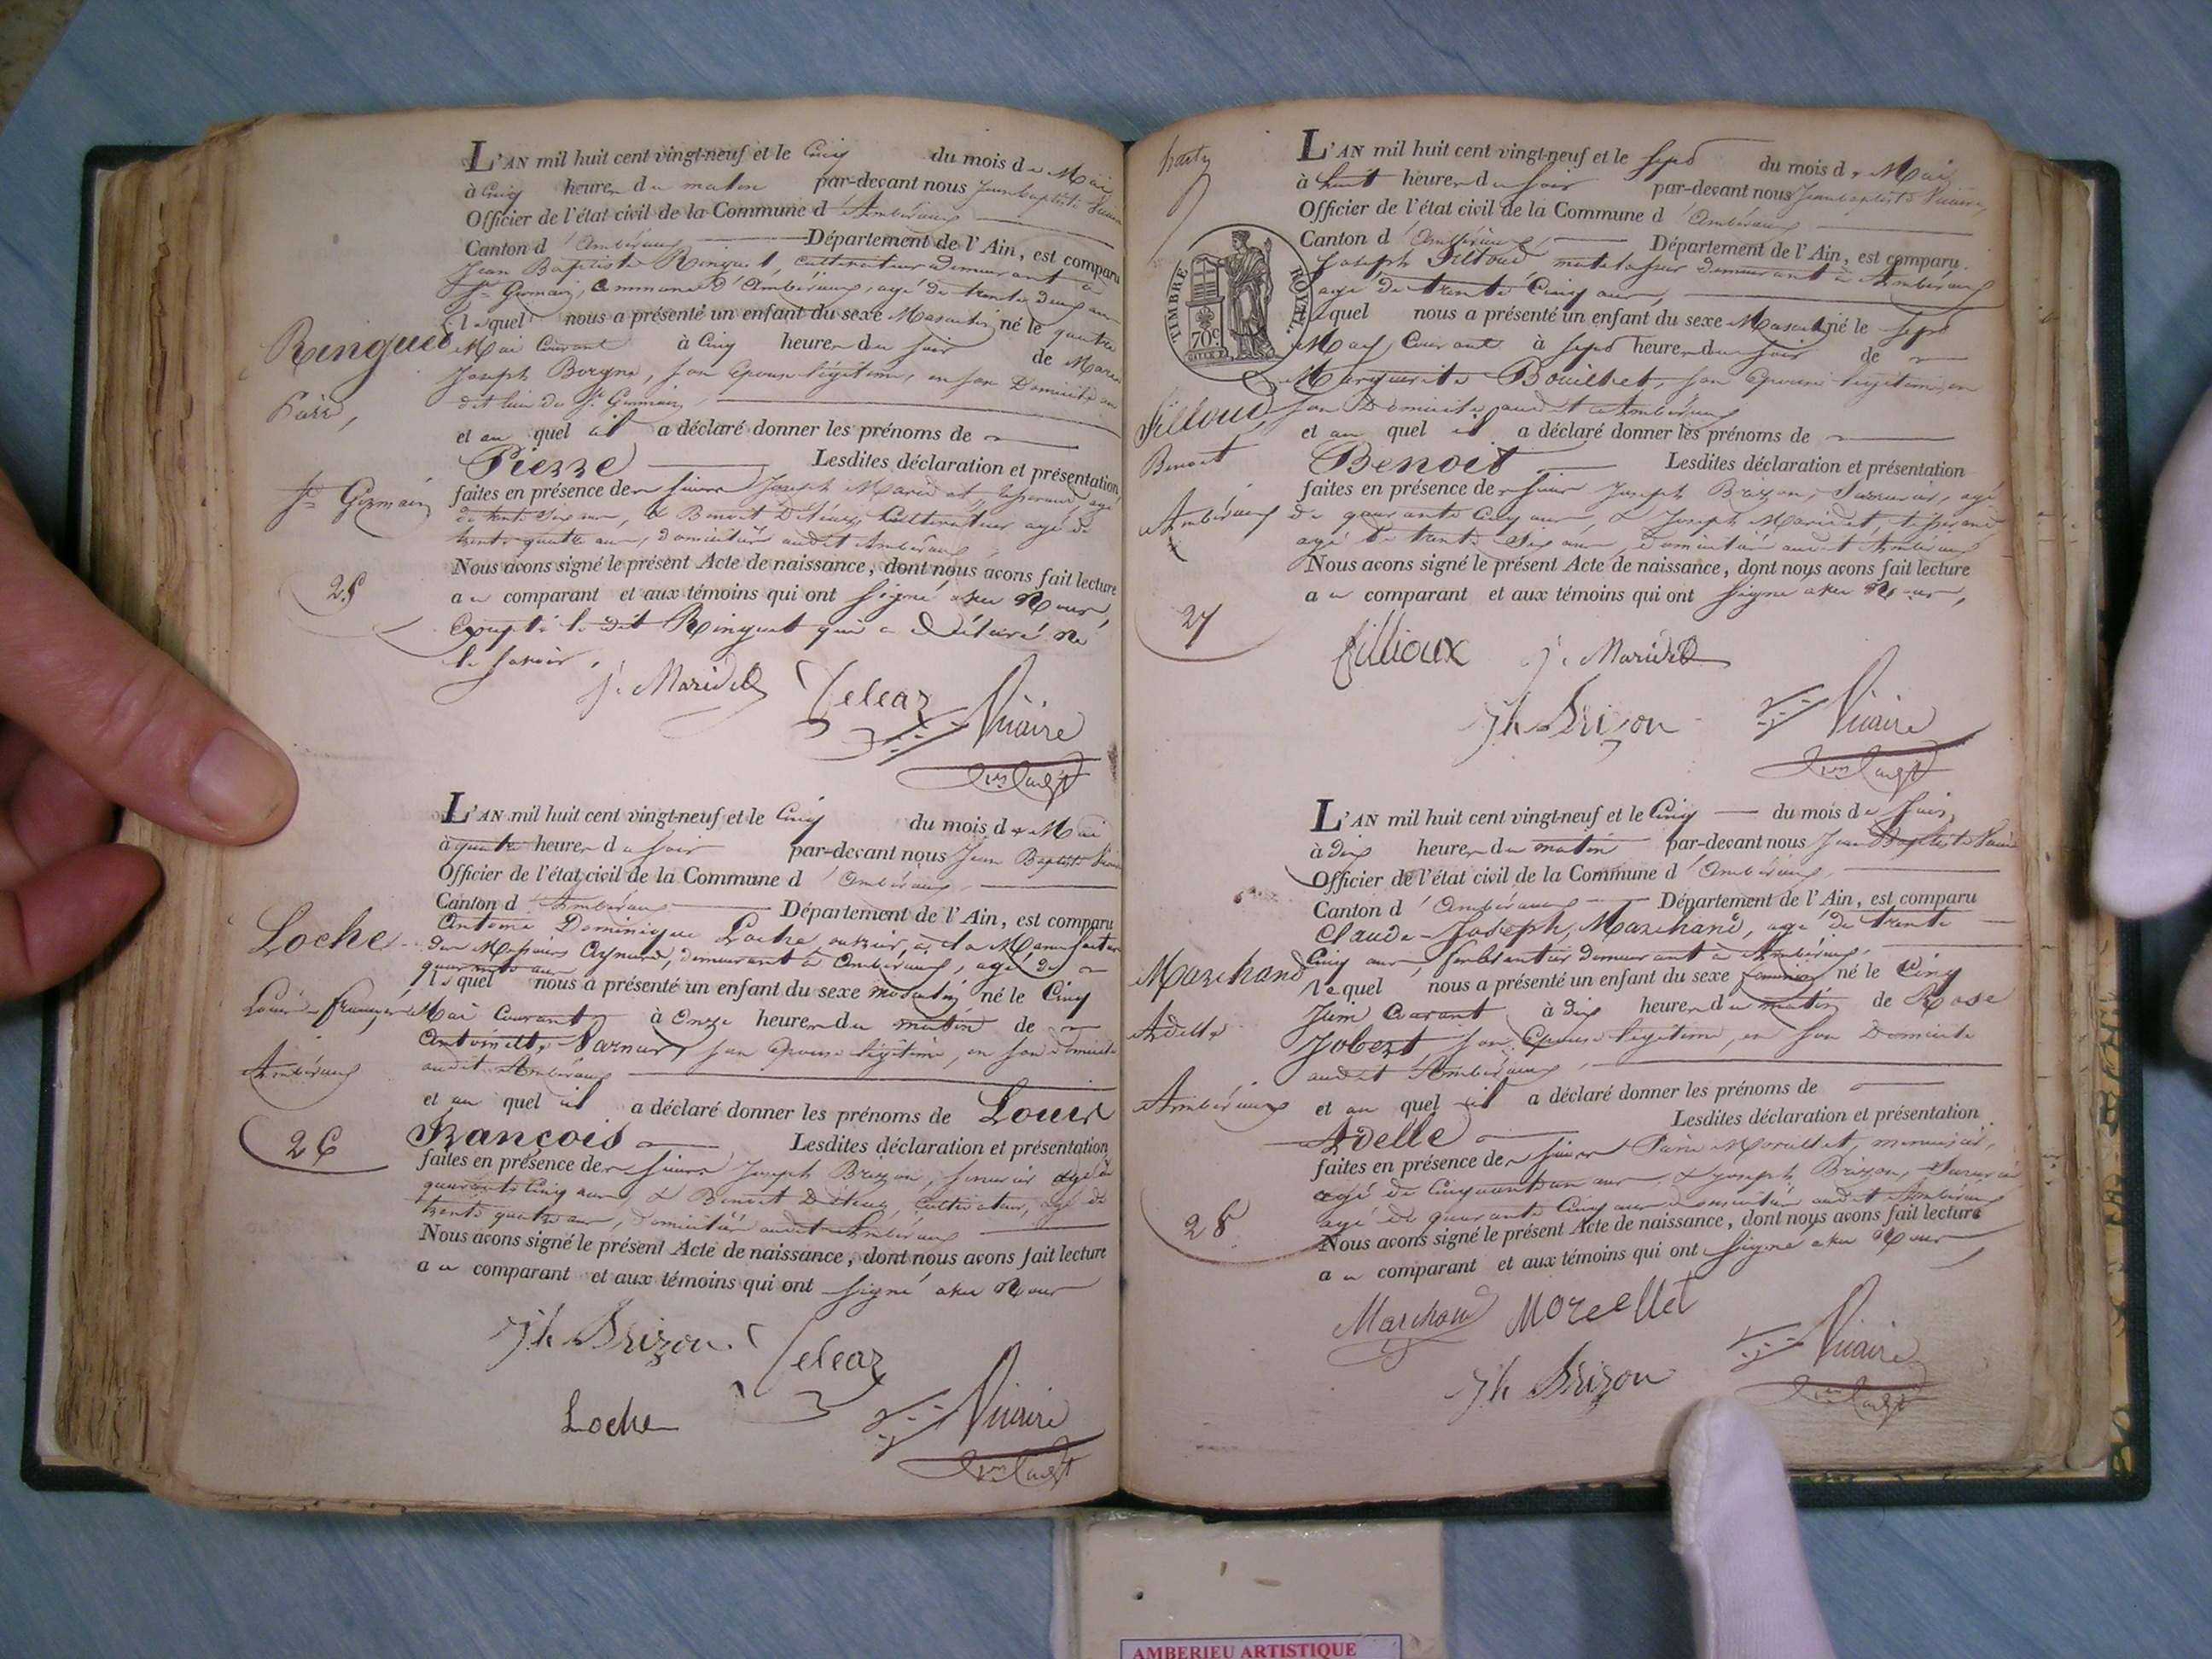 L'AN mil huit cent vingt-neuf et le Cinq du mois de Mai
à Cinq heures du matin par-devant nous Jean baptiste
Officier de l'état civil de la Commune d'Ambérieux
Canton d'Ambérieux Département de l'Ain, est comparu
Jean Baptiste Ringuet, cultivateur demeurant à
St Germain, Commune d'Ambérieux, agé de trente deux ans
lequel nous a présenté un enfant du sexe Masculin né le quatre
Mai Courant à Cinq heures du soir de Marie
Joseph Borgne, son Epouse légitime, en son Domicile au
dit lieu de St Germain
et au quel il a déclaré donner les prénoms de
Pierre Lesdites déclaration et présentation
faites en présence des sieurs Joseph Maridet, tisserand, agé
de trente six ans, & Benoit Cultivateur agé de
trente quatre ans, domiciliés audit Ambérieux
Nous avons signé le présent Acte de naissance, dont nous avons fait lecture
au comparant et aux témoins qui ont signé avec Nous,
Excepté le dit Ringuet qui a Déclaré Ne
le savoir.
J. Maridet
Vicaire
Ringuet
Pierre,
St Germain
25
L'AN mil huit cent vingt-neuf et le Cinq du mois de Mai
à quatre heures du soir par-devant nous Jean Baptiste
Officier de l'état civil de la Commune d'Ambérieux
Canton d'Ambérieux Département de l'Ain, est comparu
Antoine Dominique Loche ouvrier, à la Manufacture
des Messieurs Aynard, demeurant à Ambérieux, agé de
quarante ans
lequel nous a présenté un enfant du sexe masculin né le Cinq
Mai Courant à Onze heures du matin de
Antoinette son Epouse légitime, en son domicile
audit Ambérieux
et au quel il a déclaré donner les prénoms de Louis
François Lesdites déclaration et présentation
faites en présence des sieurs Joseph Brizon, serrurier agé de
quarante Cinq ans, & Benoit Cultivateur, agé de
trente quatre ans, domiciliés audit Ambérieux
Nous avons signé le présent Acte de naissance, dont nous avons fait lecture
au comparant et aux témoins qui ont signé avec Nous
Jh Brizon
Loche
Vicaire
Loche
Louis françois
Ambérieux
26
L'AN mil huit cent vingt-neuf et le sept du mois de Mai
à huit heures du soir par-devant nous Jean baptiste
Officier de l'état civil de la Commune d'Ambérieux
Canton d'Ambérieux Département de l'Ain, est comparu
Joseph matelasseur demeurant à Ambérieux
agé de trente Cinq ans,
lequel nous a présenté un enfant du sexe Masculin né le sept
May Courant à sept heures du soir de
Marguerite Bouilhet, son Epouse légitime, en
son Domicile audit Ambérieux
et au quel il a déclaré donner les prénoms de
Benoit Lesdites déclaration et présentation
faites en présence des sieurs Joseph Brizon, Serrurier, agé
de quarante Cinq ans, & Joseph Maridet, tisserand
agé de trente Six ans, Domiciliés audit Ambérieux
Nous avons signé le présent Acte de naissance, dont nous avons fait lecture
au comparant et aux témoins qui ont signé avec Nous,
fillioux J. Maridet
Jh Brizon
Vicaire
TIMBRE ROYAL
70c
Benoit
Ambérieux
27
L'AN mil huit cent vingt-neuf et le Cinq du mois de Juin
à dix heures du matin par-devant nous Jean Baptiste
Officier de l'état civil de la Commune d'Ambérieux
Canton d'Ambérieux Département de l'Ain, est comparu
Claude-Joseph Marchand, agé de trente
Cinq ans, ferblantier demeurant à Ambérieux,
lequel nous a présenté un enfant du sexe féminin né le Cinq
Juin Courant à dix heures du matin de Rose
Jobert son Epouse légitime, en son Domicile
audit Ambérieux
et au quel il a déclaré donner les prénoms de
Adelle Lesdites déclaration et présentation
faites en présence des sieurs Morcellet, menuisier,
agé de Cinquante un ans & Joseph Brizon, Serrurier
agé de quarante Cinq ans domiciliés audit Ambérieux
Nous avons signé le présent Acte de naissance, dont nous avons fait lecture
au comparant et aux témoins qui ont signé avec Nous
Marchand Morcellet
Jh Brizon
Vicaire
Marchand
Adelle
Ambérieux
28
AMBERIEU ARTISTIQUE